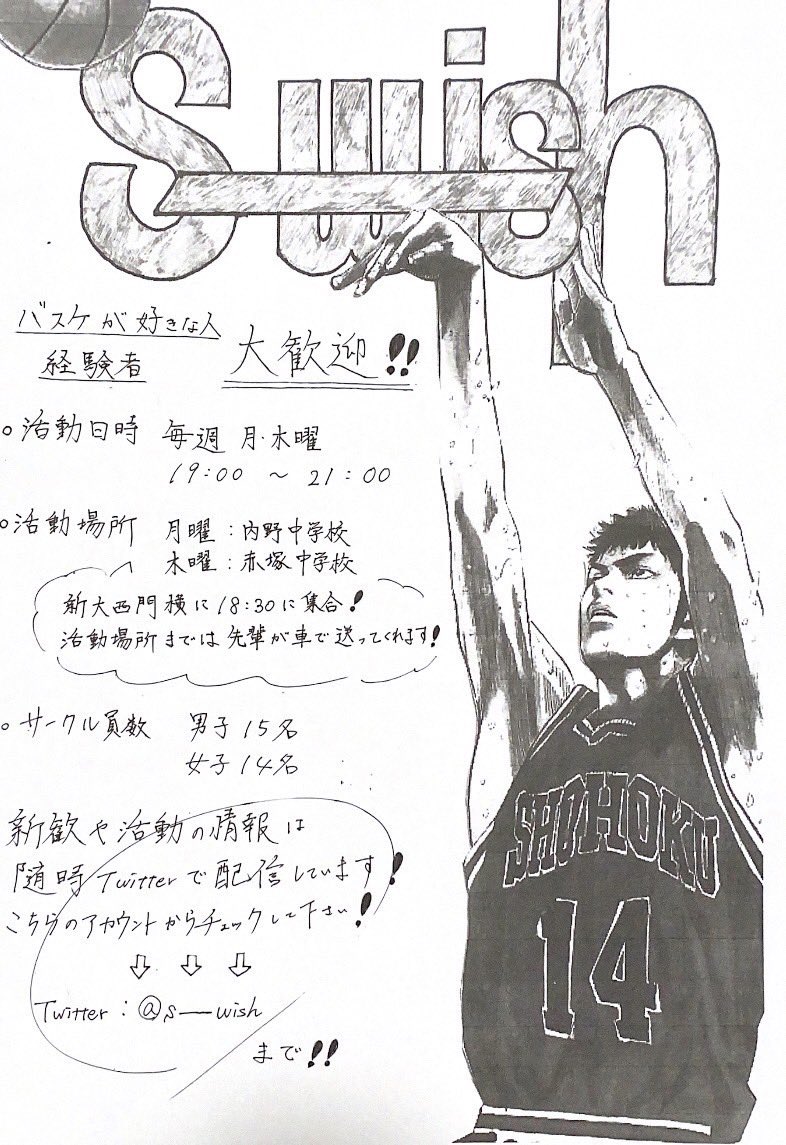 Swish
バスケが好きな人
経験者
大歓迎!!
○活動日時 毎週 月・木曜
19:00 〜 21:00
○活動場所 月曜:内野中学校
木曜:赤塚中学校
新大西門横に18:30に集合!
活動場所までは先輩が車で送ってくれます!
○サークル員数 男子15名
女子14名
新歓や活動の情報は
随時Twitterで配信しています!
こちらのアカウントからチェックして下さい!
⇩ ⇩ ⇩
Twitter:@s__wish
まで!!
SHOHOKU
14